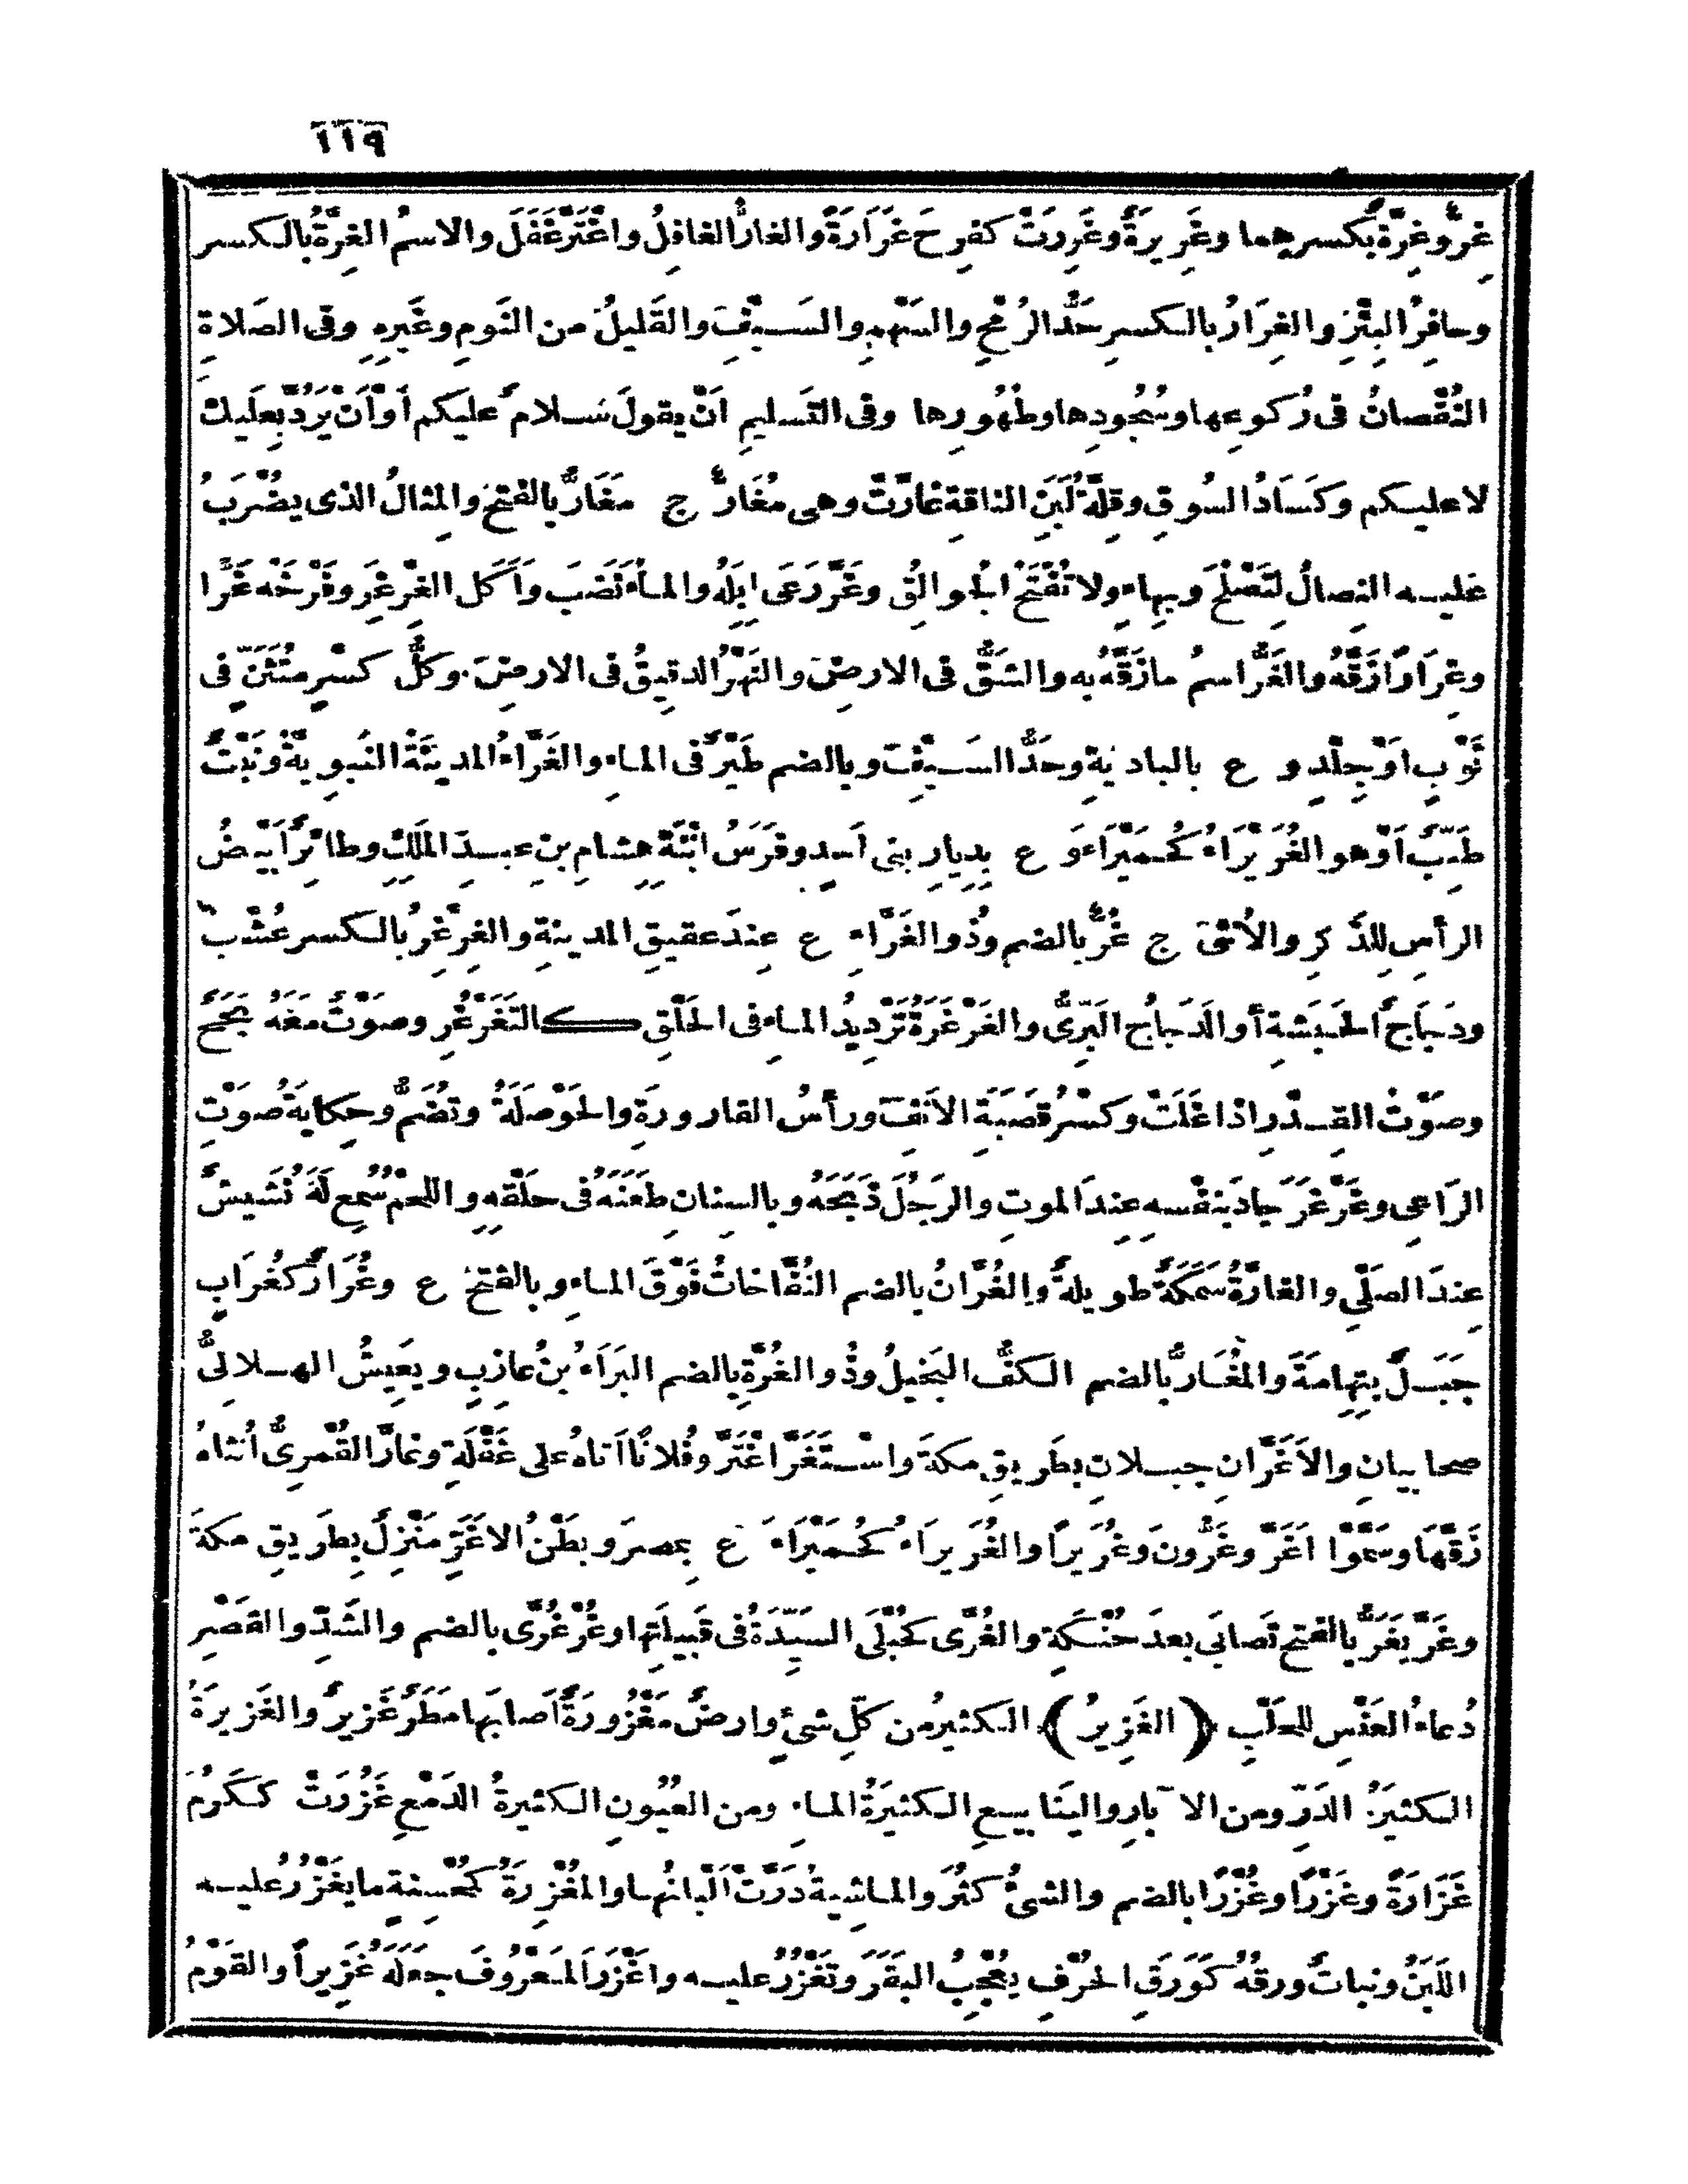 ١١٩
غِرٌّ وغِرَّةٌ بكسرهما وغَرِيرَةٌ وغَرِرَتْ كفرِحَ غَرَارَةً والغارُّ الغافِلُ واغْتَرَّ غَفَلَ والاسمُ الغِرَّةُ بالكسر
وحافِرُ البِئْرِ والغِرَارُ بالكسرِ حَدُّ الرُمْحِ والسَهْمِ والسَيْفِ والقَليلُ من النَومِ وغَيرِهِ وفى الصَلاةِ
النُقْصانُ فى رُكوعِها وسُجُودِها وطُهُورِها وفى التَسليمِ اَنْ يقولَ سَلامٌ عليكم اَوْ اَنْ يَرُدَّ بِعلَيكَ
لا عليكم وكَسَادُ السُوقِ وقِلَّةُ لَبَنِ الناقةِ غارَّتْ وهى مُغَارٌّ ج مَغَارُّ بالفتحِ والمِثالُ الذى يضْرَبُ
عليه النِصالُ لِتَصْلُحَ وبِهاءٍ ولا تُفْتَحُ الجُوالِقُ وغَرَّ رَعَى اِبِلَهُ والماءُ نَضَبَ واَكَل الغِرْغِرَ وفَرْخَهُ غَرًّا
وغِرَارًا زَقَّهُ والغَرُّ اسمُ مازَقَّهُ به والشَقُّ فى الارضِ والنَهْرُ الدقيقُ فى الارضِ وكلُّ كسْرٍ مُتَثَنٍّ فى
ثَوْبٍ اوْ جِلْدٍ و ع بالباديَةِ وحَدُّ السَيْفِ وبالضم طَيْرٌ فى الماءِ والغَرَّاءُ المدينَةُ النَبويةُ ونَبْتٌ
طَيِّبٌ اَوْ هو الغُرَيْرَاءُ كحُمَيْرَاءَ و ع بِدِيارِ بنى اَسدٍ وفَرَسُ ابْنَةِ هِشامِ بنِ عبدِ المَلِكِ وطائرٌ اَبْيَضُ
الرأسِ لِلذَكرِ والاُنثى ج غُرٌّ بالضم وذُو الغَرَّاءِ ع عِندَ عقيقِ المدينةِ والغِرْغِرُ بالكسر عُشْبٌ
ودَجاجُ الحَبَشةِ أو الدَجاجُ البَرِّىُّ والغَرْغَرَةُ تَرْدِيدُ الماءِ فى الحَلْقِ كالتَغَرْغُرِ وصَوْتٌ مَعَهُ بَحَحٌ
وصَوْتُ القِدْرِ اذا غَلَتْ وكسْرُ قَصَبَةِ الاَنفِ ورأسُ القارورةِ والحَوْصلَةُ وتُضَمُّ وحِكايةُ صوْتِ
الرَاعِى وغَرْغَرَ جادَ بنفْسِهِ عِندَ الموتِ والرَجُلَ ذَبَحَهُ وبالسِنانِ طَعَنَهُ فى حلْقهِ واللحْمُ سُمِعَ لَهُ نَشيشٌ
عِندَ الصَلْىِ والغارَّةُ سَمَكَةٌ طويلةٌ والغُرَّانُ بالضم النُفَّاخاتُ فَوْقَ الماءِ وبالفتحِ ع وغُرَارٌ كغُرَابٍ
جَبَلٌ بِتِهامَةَ والمُغَارُّ بالضم الكفُّ البَخيلُ وذُو الغُرَّةِ بالضم البَرَاءُ بنُ عازِبٍ ويَعِيشُ الهِلالِىُّ
صحابيانِ والاَغَرَّانِ جبلانِ بطَريقِ مكةَ واسْتَغَرَّ اغْتَرَّ وفُلانًا اَتاهُ على غَفْلَةٍ وغارَّ القُمْرِىُّ أُنثاهُ
زَقَّهَا وسَمَّوْا اَغَرَّ وغَرُّونَ وغُرَيرًا والغُرَيرَاءُ كحُمَيْرَاءَ ع بِمصرَ وبطْنُ الاغَرِّ مَنْزِلٌ بِطَريقِ مكةَ
وغَرَّ يَغَرُّ بالفتح تَصابَى بعدَ حُنْكةٍ والغُرَّى كحُبْلَى السَيِّدَةُ فى قَبِيلَتِها وغُرْغُرَّى بالضم والشَدِّ والقصْرِ
دُعاءُ العَنْسِ للحلَبِ ﴿ الغَزِيرُ ﴾ الكثيرُ من كلِّ شىءٍ وارضٌ مَغْزُورَةٌ اَصابَها مَطَرٌ غَزيرٌ والغَزيرَةُ
الكثيرَةُ الدَرِّ ومن الآبارِ واليَنَابيعِ الكثيرَةُ الماءِ ومن العُيُونِ الكثيرةُ الدَمْعِ غَزُرَتْ ككَرُمَ
غَزَارَةً وغَزْرًا وغُزْرًا بالضم والشئُ كثُرَ والماشِيةُ دَرَّتْ اَلْبانُها والمُغْزِرَةُ كمُحْسِنةٍ ما يَغْزُرُ عليه
اللَبَنُ ونباتٌ ورقُهُ كَوَرَقِ الحُرْفِ يُعْجِبُ البقَرَ وتَغْزُرُ عليه واغْزَرَ المَعْرُوفَ جعَلَهُ غَزِيراً والقَوْمُ